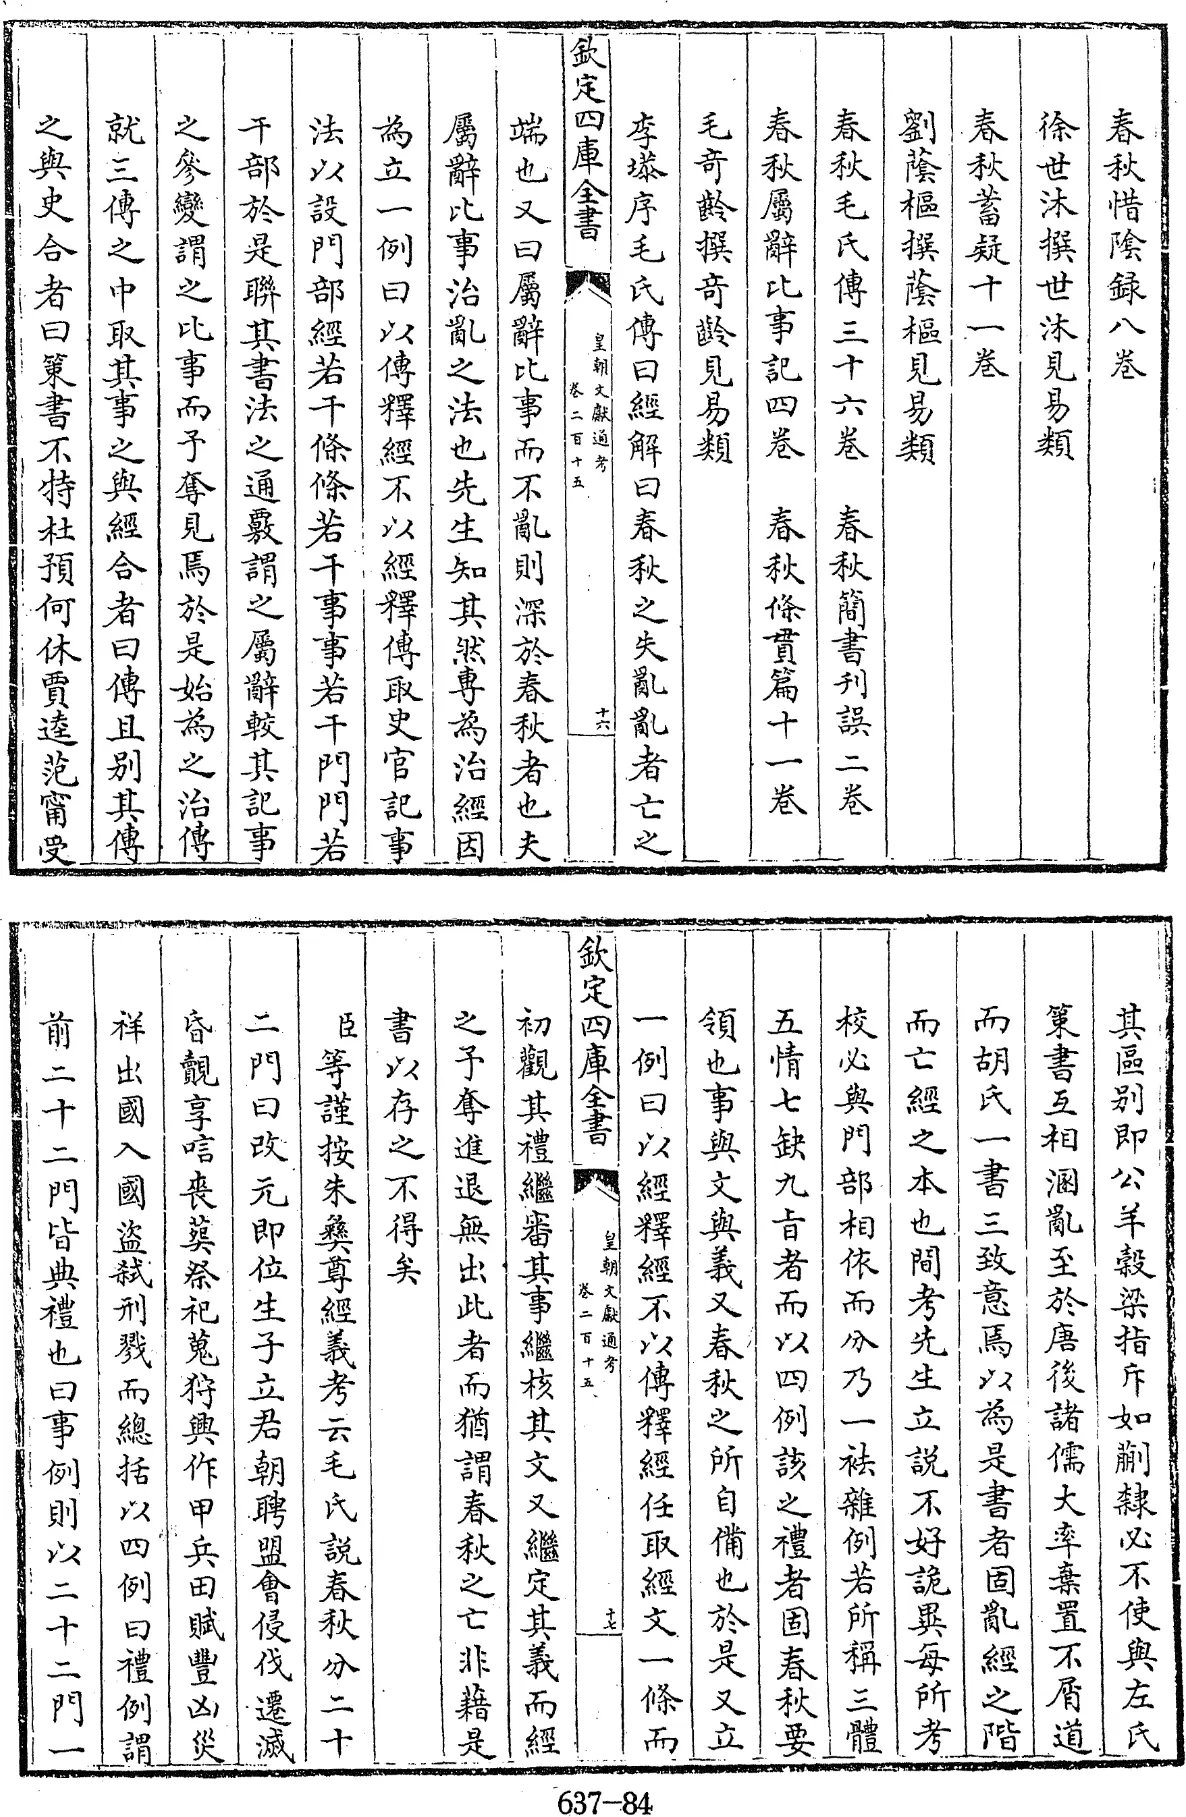 春秋惜陰録八卷
徐世沐撰世沐見易類
春秋蓄疑十一卷
劉蔭樞撰蔭樞見易類
春秋毛氏傳三十六卷 春秋簡書刊誤二卷
春秋屬辭比事記四卷 春秋條貫篇十一卷
毛奇齡撰奇齡見易類
李塨序毛氏傳曰經解曰春秋之失亂亂者亡之
欽定四庫全書
皇朝文獻通考
卷二百十五
十六
端也又曰屬辭比事而不亂則深於春秋者也夫
屬辭比事治亂之法也先生知其然專為治經因
為立一例曰以傳釋經不以經釋傳取史官記事
法以設門部經若干條條若干事事若干門門若
干部於是聯其書法之通覈謂之屬辭較其記事
之參變謂之比事而予奪見焉於是始為之治傳
就三傳之中取其事之與經合者曰傳且别其傳
之與史合者曰策書不特杜預何休賈逵范甯受
其區别即公羊穀梁指斥如蒯隸必不使與左氏
策書互相溷亂至於唐後諸儒大率棄置不屑道
而胡氏一書三致意焉以為是書者固亂經之階
而亡經之本也間考先生立説不好詭異每所考
校必與門部相依而分乃一袪雜例若所稱三體
五情七缺九旨者而以四例該之禮者固春秋要
領也事與文與義又春秋之所自備也於是又立
一例曰以經釋經不以傳釋經任取經文一條而
欽定四庫全書
皇朝文獻通考
卷二百十五
十七
初觀其禮繼審其事繼核其文又繼定其義而經
之予奪進退無出此者而猶謂春秋之亡非藉是
書以存之不得矣
臣等謹按朱彝尊經義考云毛氏説春秋分二十
二門曰改元即位生子立君朝聘盟會侵伐遷滅
昏覿享唁喪葬祭祀蒐狩興作甲兵田賦豐凶災
祥出國入國盜弑刑戮而總括以四例曰禮例謂
前二十二門皆典禮也曰事例則以二十二門一
637-84